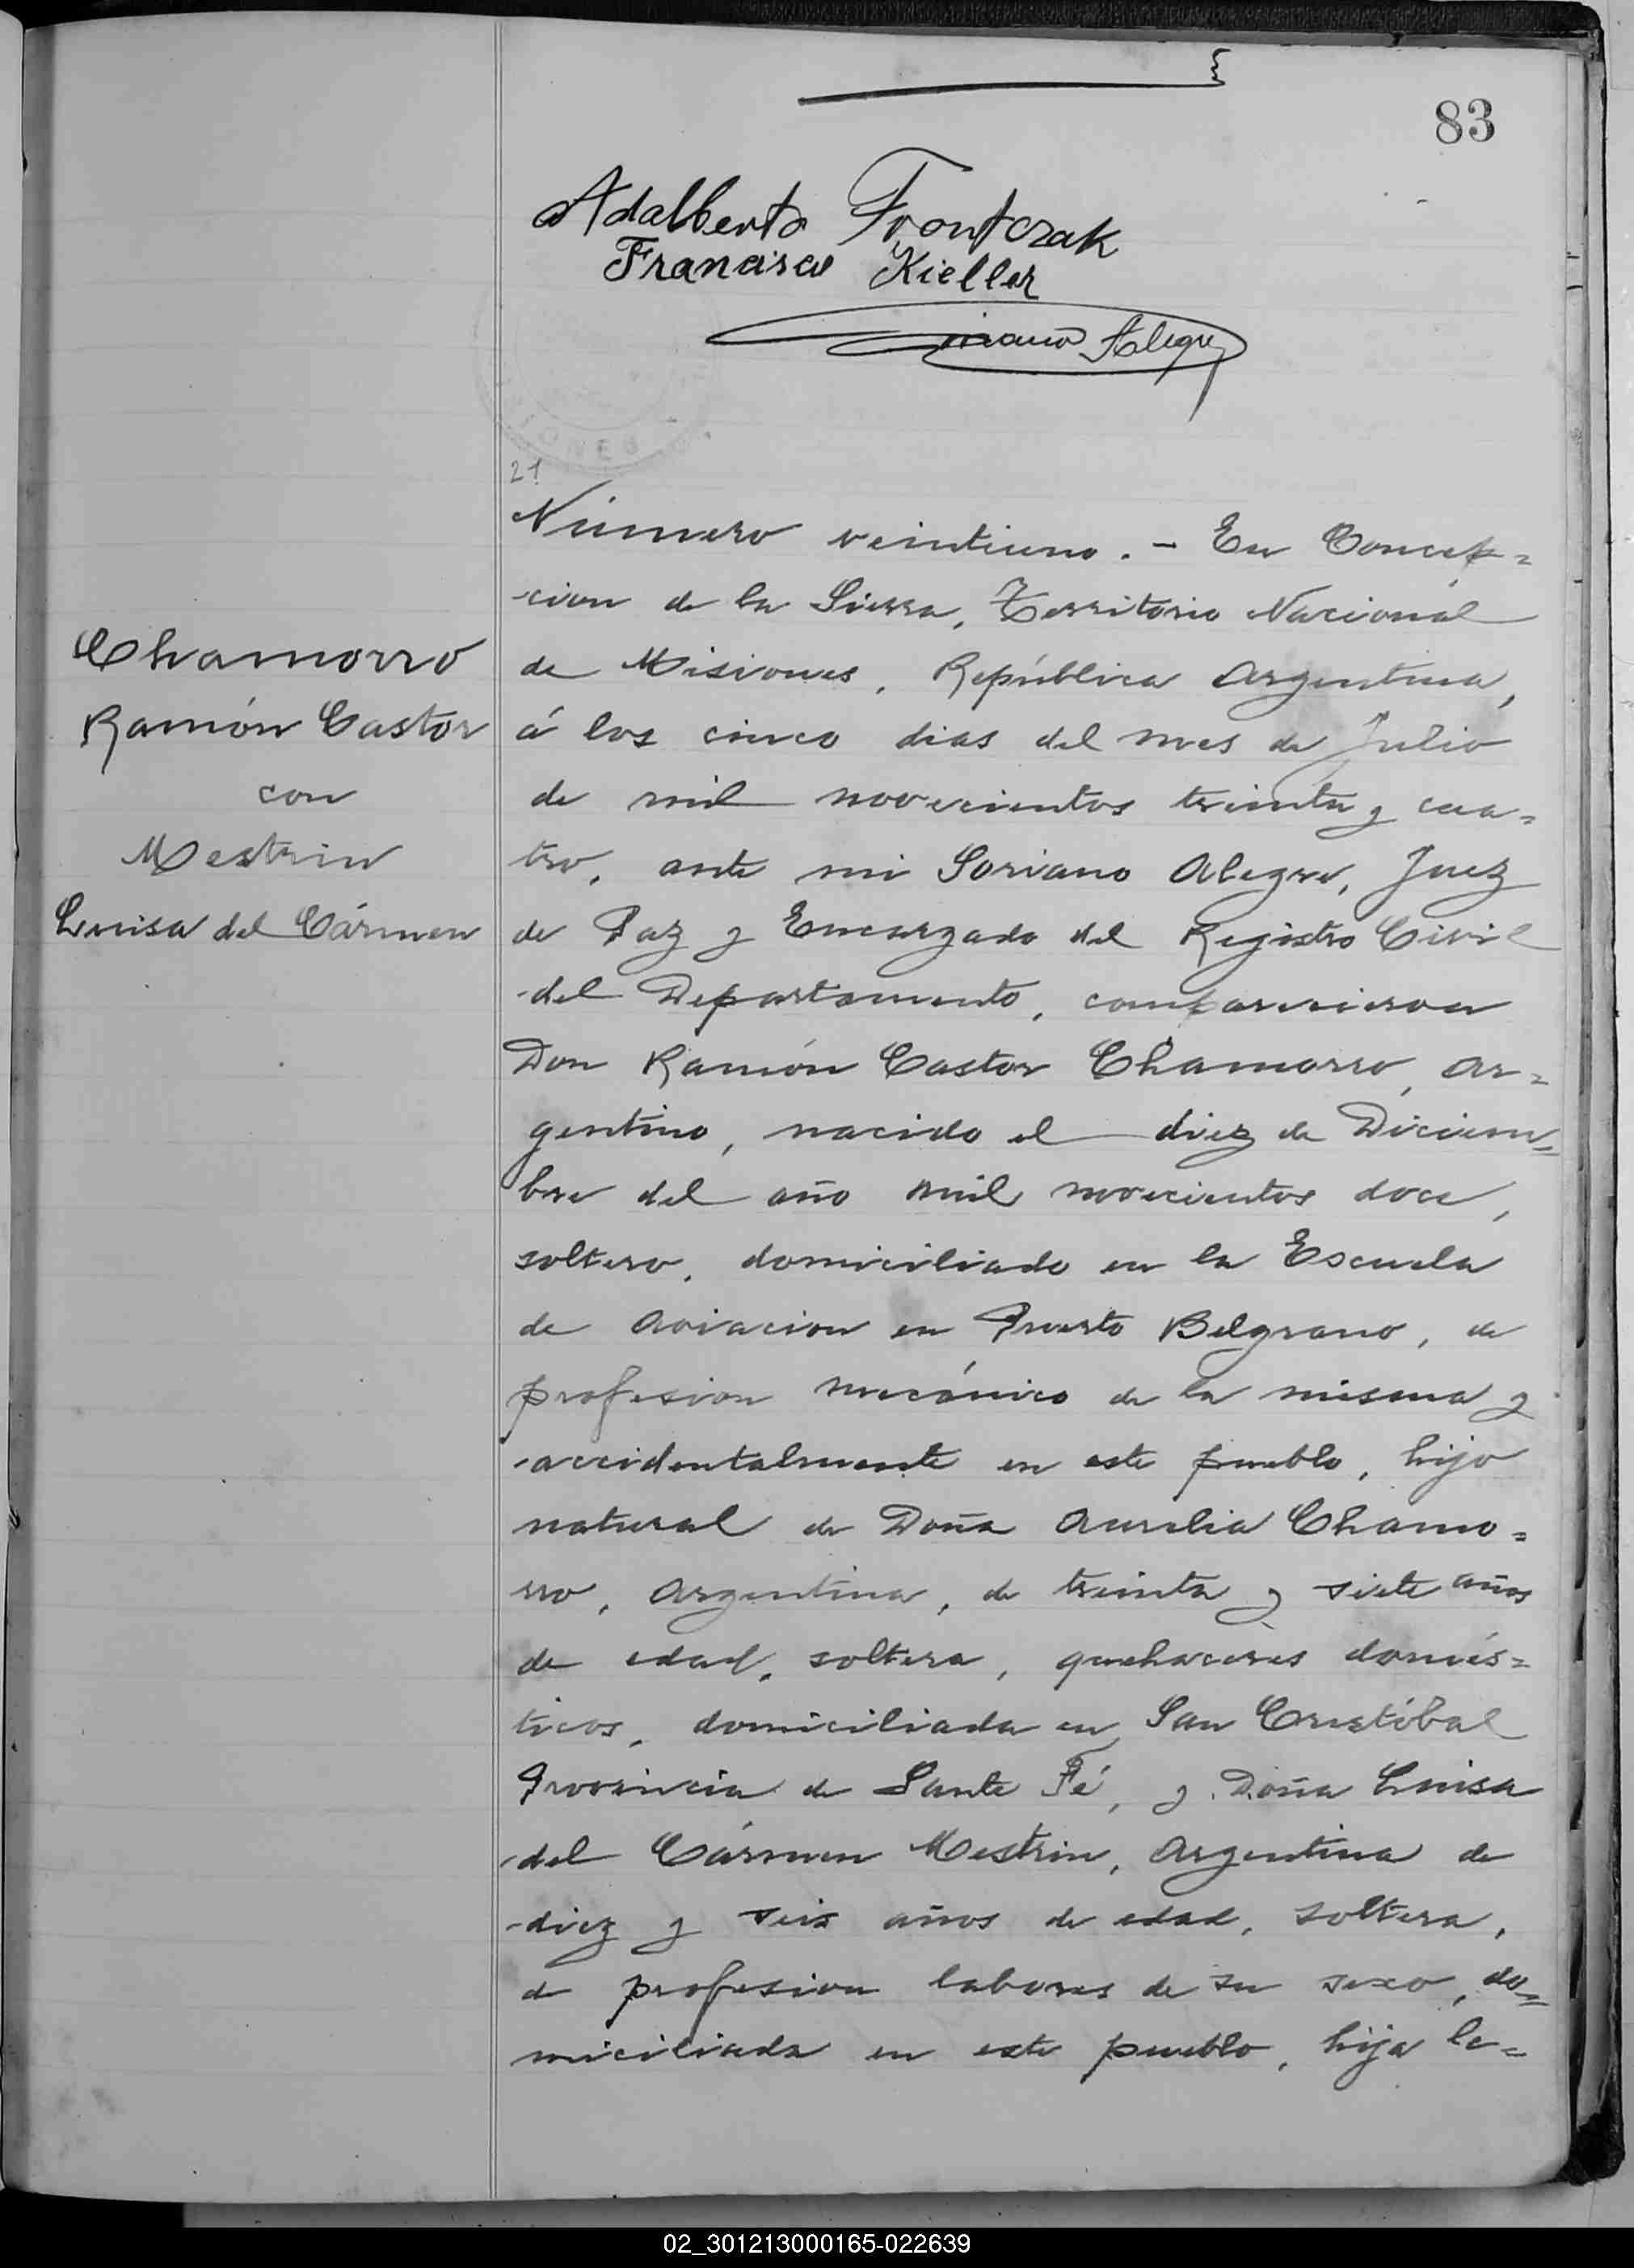 83
Adalberto Frontczak
Francisco Kieller
Soriano Alegre
21
Número veintiuno. - En Concep=
cion de la Sierra, Territorio Nacional
de Misiones, República Argentina,
á los cinco dias del mes de Julio
de mil novecientos treinta y cua=
tro, ante mi Soriano Alegre, Juez
de Paz y Encargado del Registro Civil
del Departamento, comparecieron
Don Ramón Castor Chamorro, Ar=
gentino, nacido el diez de Diciem=
bre del año mil novecientos doce,
soltero, domiciliado en la Escuela
de Aviacion en Puerto Belgrano, de
profesion mecánico de la misma y
accidentalmente en este pueblo, hijo
natural de Doña Aurelia Chamo=
rro, Argentina, de treinta y siete años
de edad, soltera, quehaceres domés=
ticos, domiciliada en San Cristóbal
Provincia de Santa Fé, y Doña Luisa
del Cármen Mestrin, Argentina de
diez y seis años de edad, soltera,
de profesion labores de su sexo, do=
miciliada en este pueblo, hija le=
Chamorro
Ramón Castor
con
Mestrin
Luisa del Cármen
02_301213000165-022639